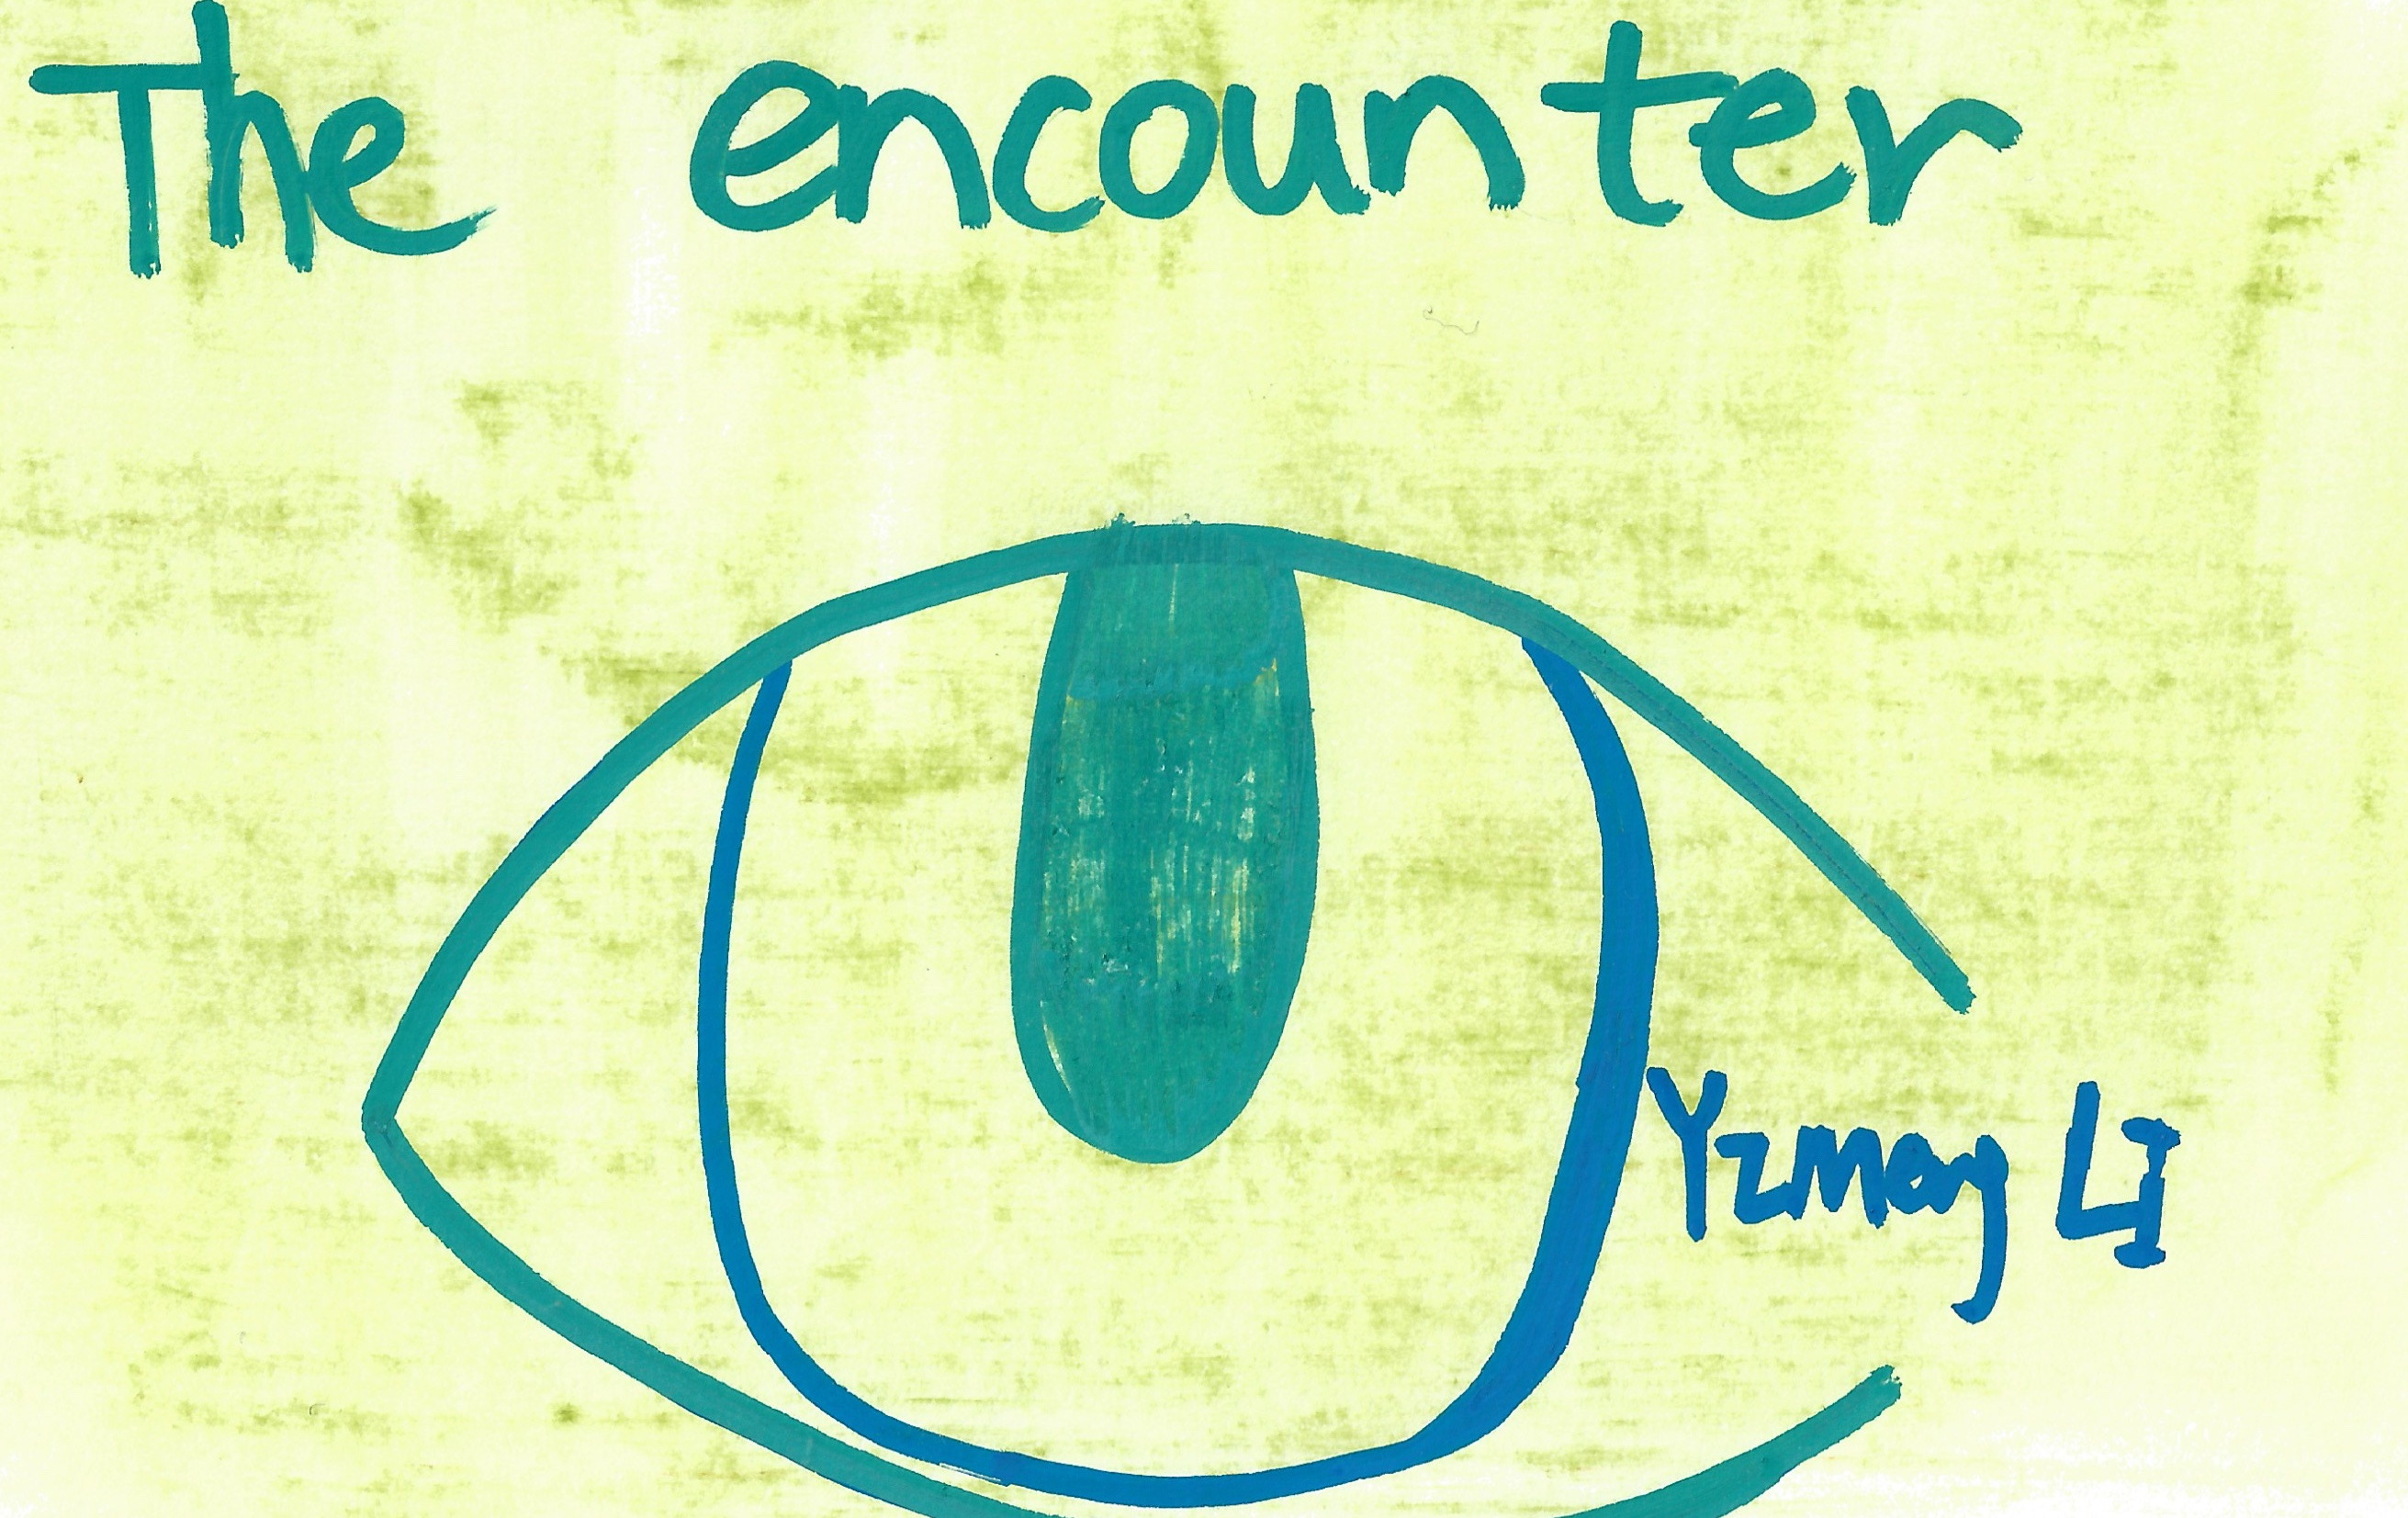 The encounter
Yzmay LI